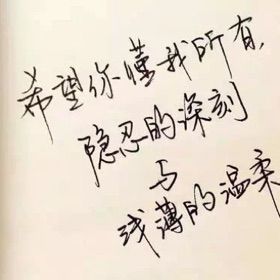 希望你懂我所有,
隐忍的深刻
与
浅薄的温柔